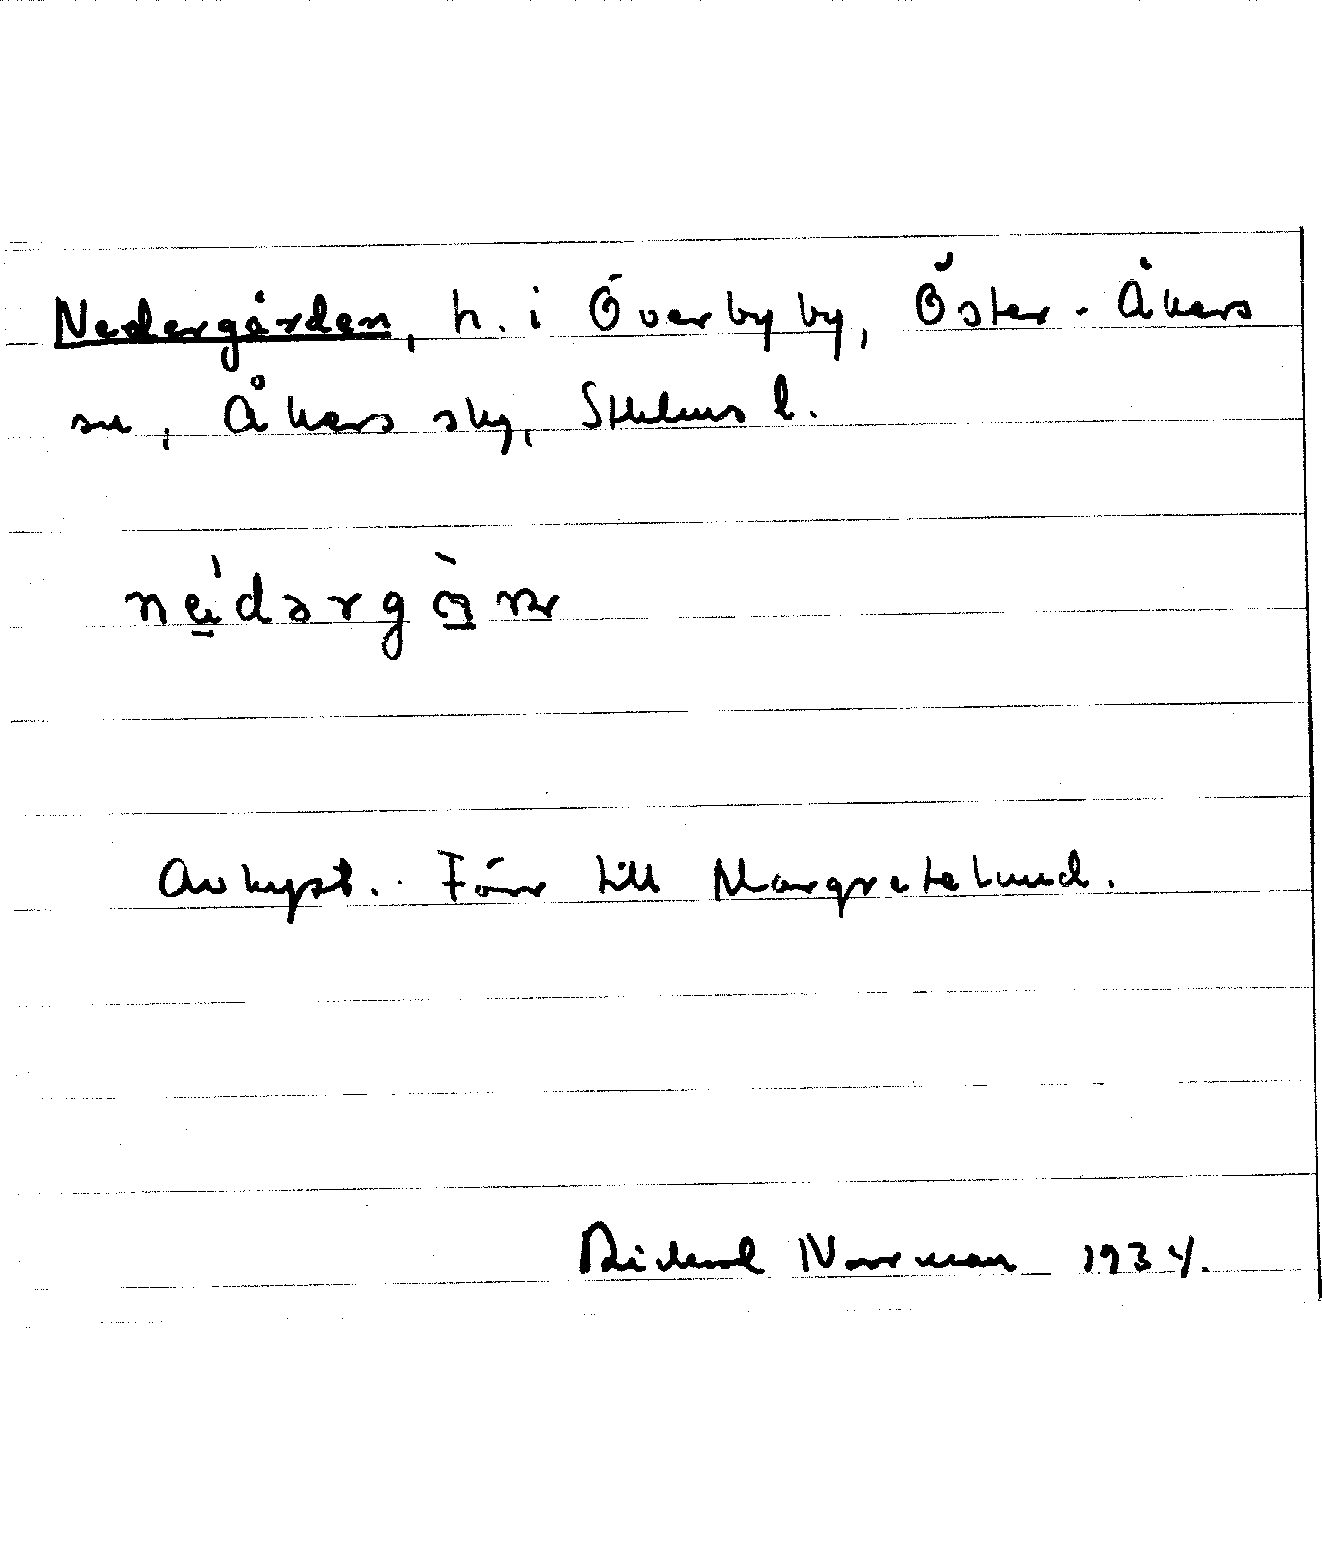 Nedergården, h. i Överby by, Öster-Åkers
sn, Åkers skg, Sthlms l.
nedərgån
Avhyst. Förr till Margretelund.
Rickard Norrman 1934.